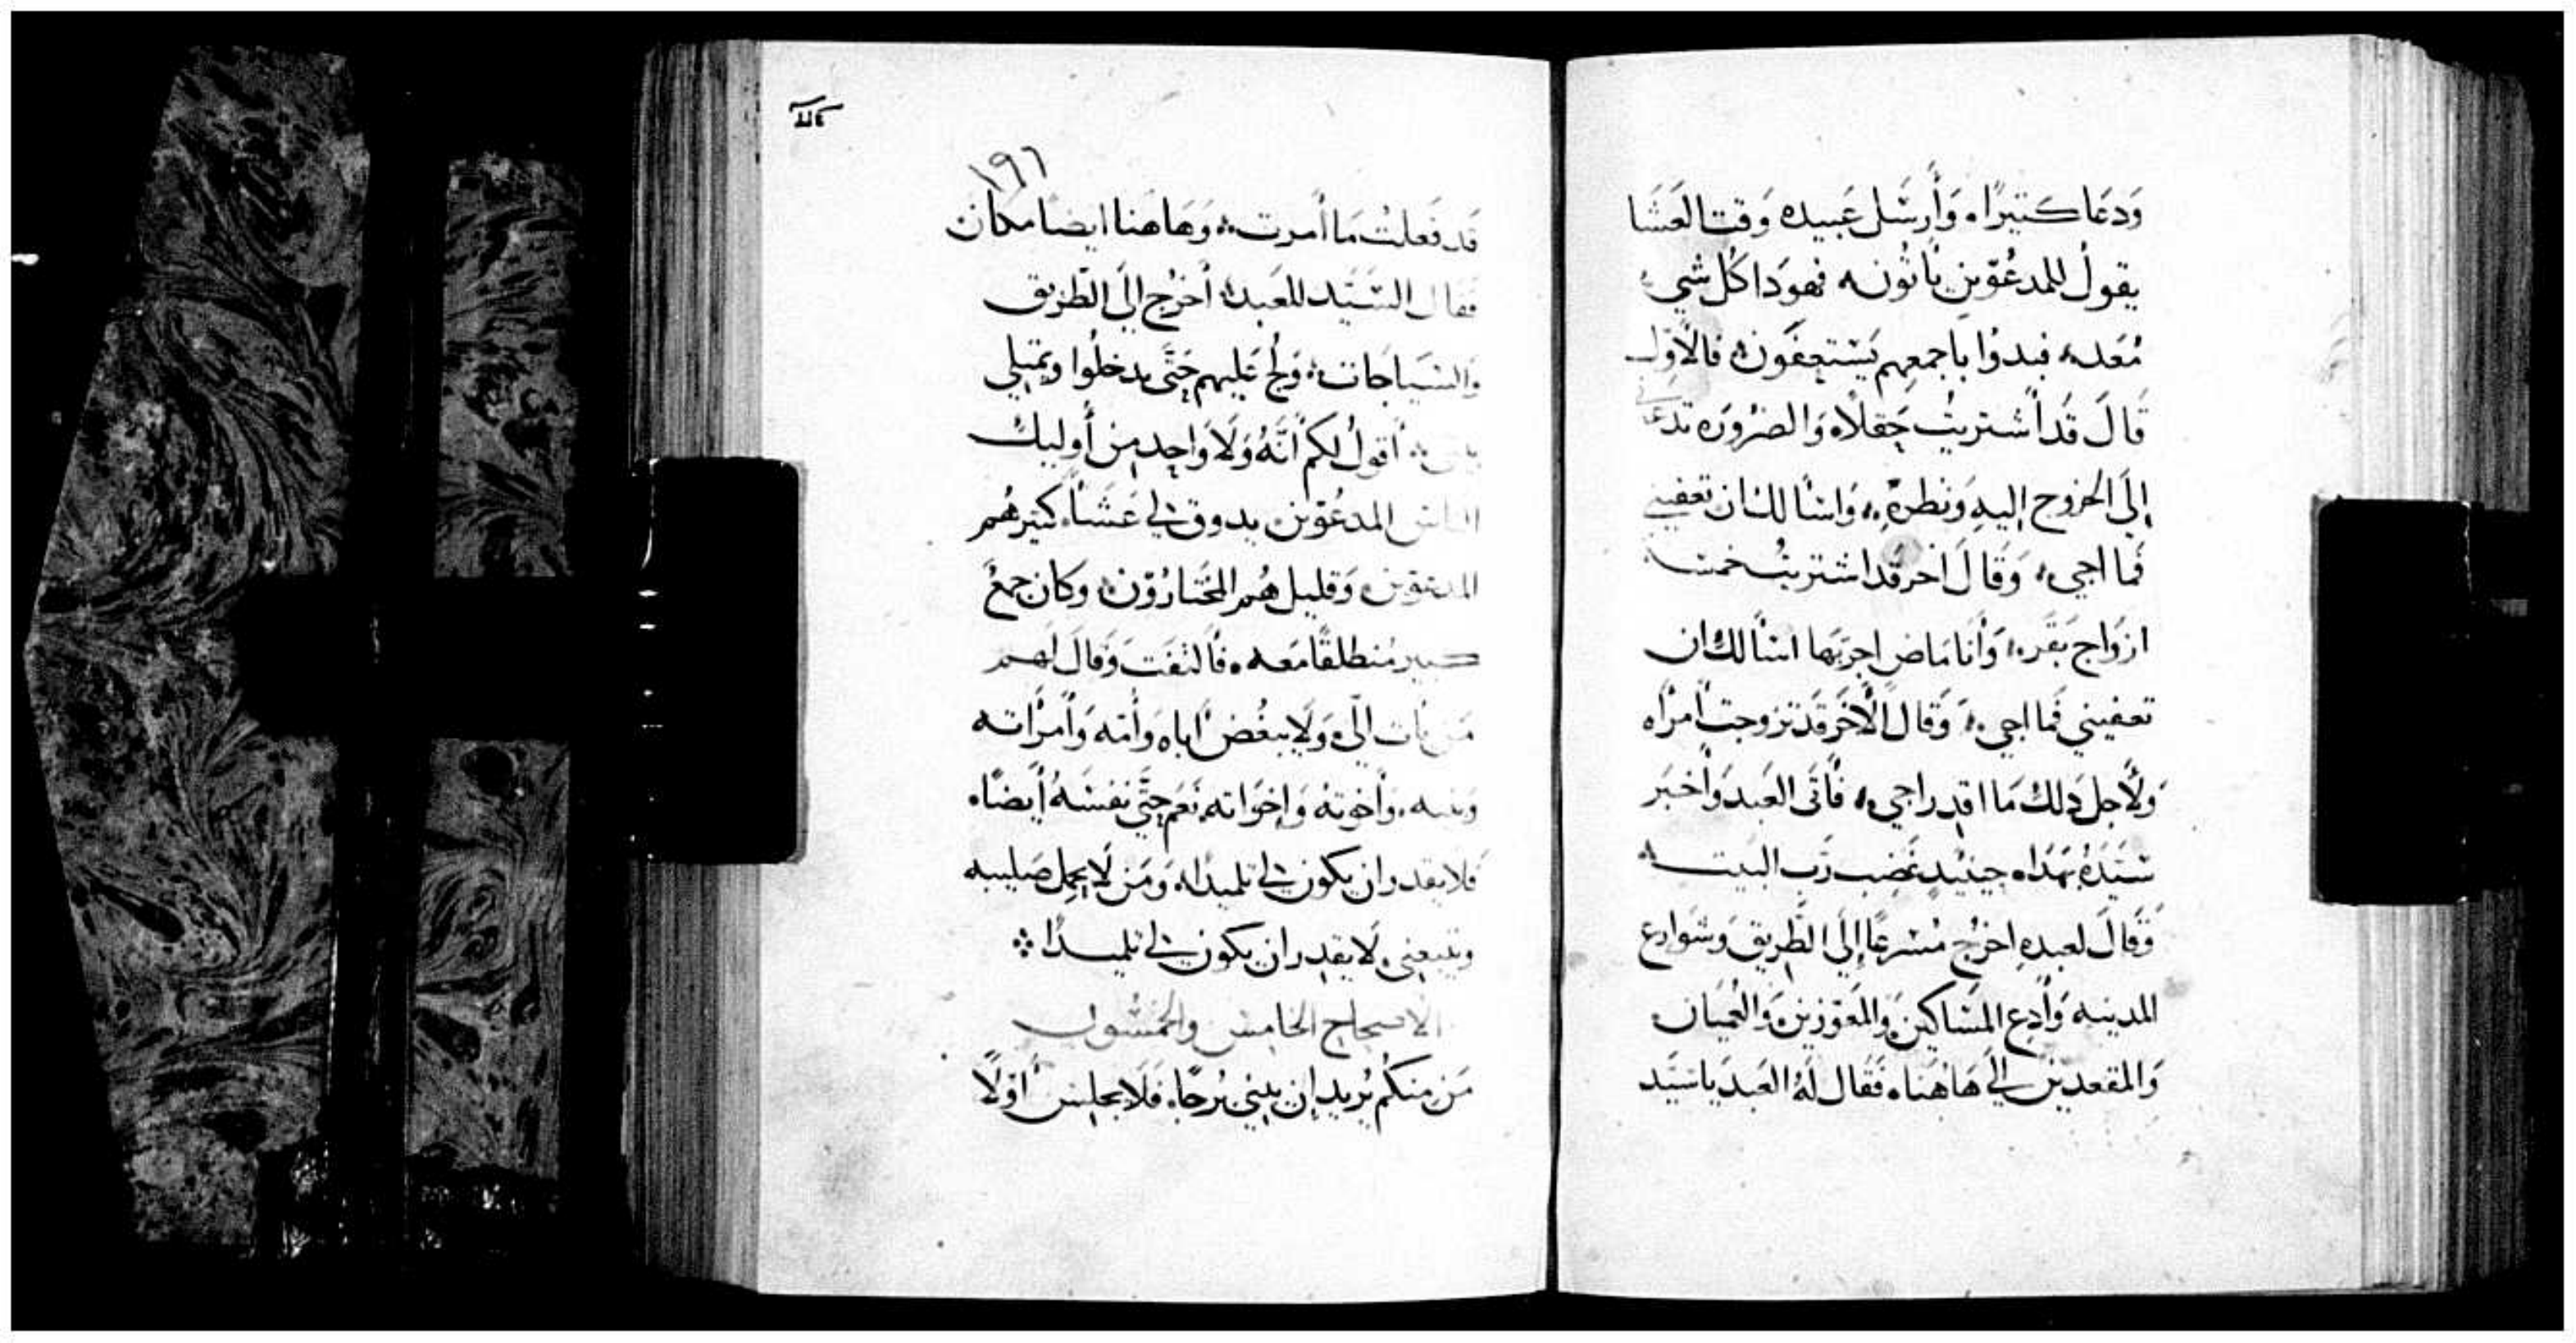 وَدعَا كتيرًا، وَأرسَل عَبيده وَقت العَشا
يقولُ للمدعُوّين يأتُونه فهوَدا كُل شي
مُعَده، فبدوُا باجمعهم يَستعِفوَن، فالاوَل
قَالَ قَد أشتريتُ حَقلاً، وَالضرُورَه تدعَني
إلَى الخروج إليهِ وَنظرهِ، وَاسْألك ان تعفيني
فما اجي، وَقَالَ اخر قَد اشتريتُ خمسَه
ازوَاج بقَره، وَأنَا مَاض اجرّبهَا اسْألك ان
تعفيني فَما اجي، وَقالَ الآخَر قَد تزوجت امرَأه
وَلأجل دَلك مَا اقدِر اجي، فأتَى العَبد وَأخبَر
سَيّدَهُ بهَدَا، حِينَيدٍ غَضِب رَب البَيت
وَقَالَ لعبدهِ اخرُج مُسْرعًا إلَي الطَّريق وَشوَارع
المدينه وَأدع المسَاكين، وَالمَعَوّزين، وَالعُميَان
وَالمقعدين إلَي هَاهُنا، فَقَال لَهُ العَبد يَا سَيّد
١٩٦
قَد فَعلتُ مَا أمرت، وَهَاهنا ايضا مكان
فقال السَيّد للعَبد، أخرُج إلَي الطَّرِيق
وَالسَيَاجَات، وَلُج عَليهم حَتَّى يدخلُوا ويمتلي
بيتي، أقولُ لكم انَّهُ وَلَا وَاحِد مِن أُوليك
الناس المدعُوّين يدوق لي عَشَأ، كتير هُم
المدعوّين، وَقليل هُم المختَارُوّن، وكان جمعُ
كبير مُنطلقًا مَعه، فَالتفَت وَقَالَ لَهم
مَن يأت اليّ، وَلَا يبغُض اباه وَأمّه وَأمرَاته
وَبنيه، وَأخوتهُ وَإخوَاته، نَعَم حتَّي نفسَهُ أيضًا،
فَلا يقدر ان يكون لي تلميدًا، وَمَن لَا يحمِل صَليبه
ويتبعني، لا يقدِر ان يكون لي تلميدًا
الاصحاح الخامس والخمسُون
مَن مِنكُم يُريد إن يبني بُرجًا، فَلَا يجلِس أوَّلًا